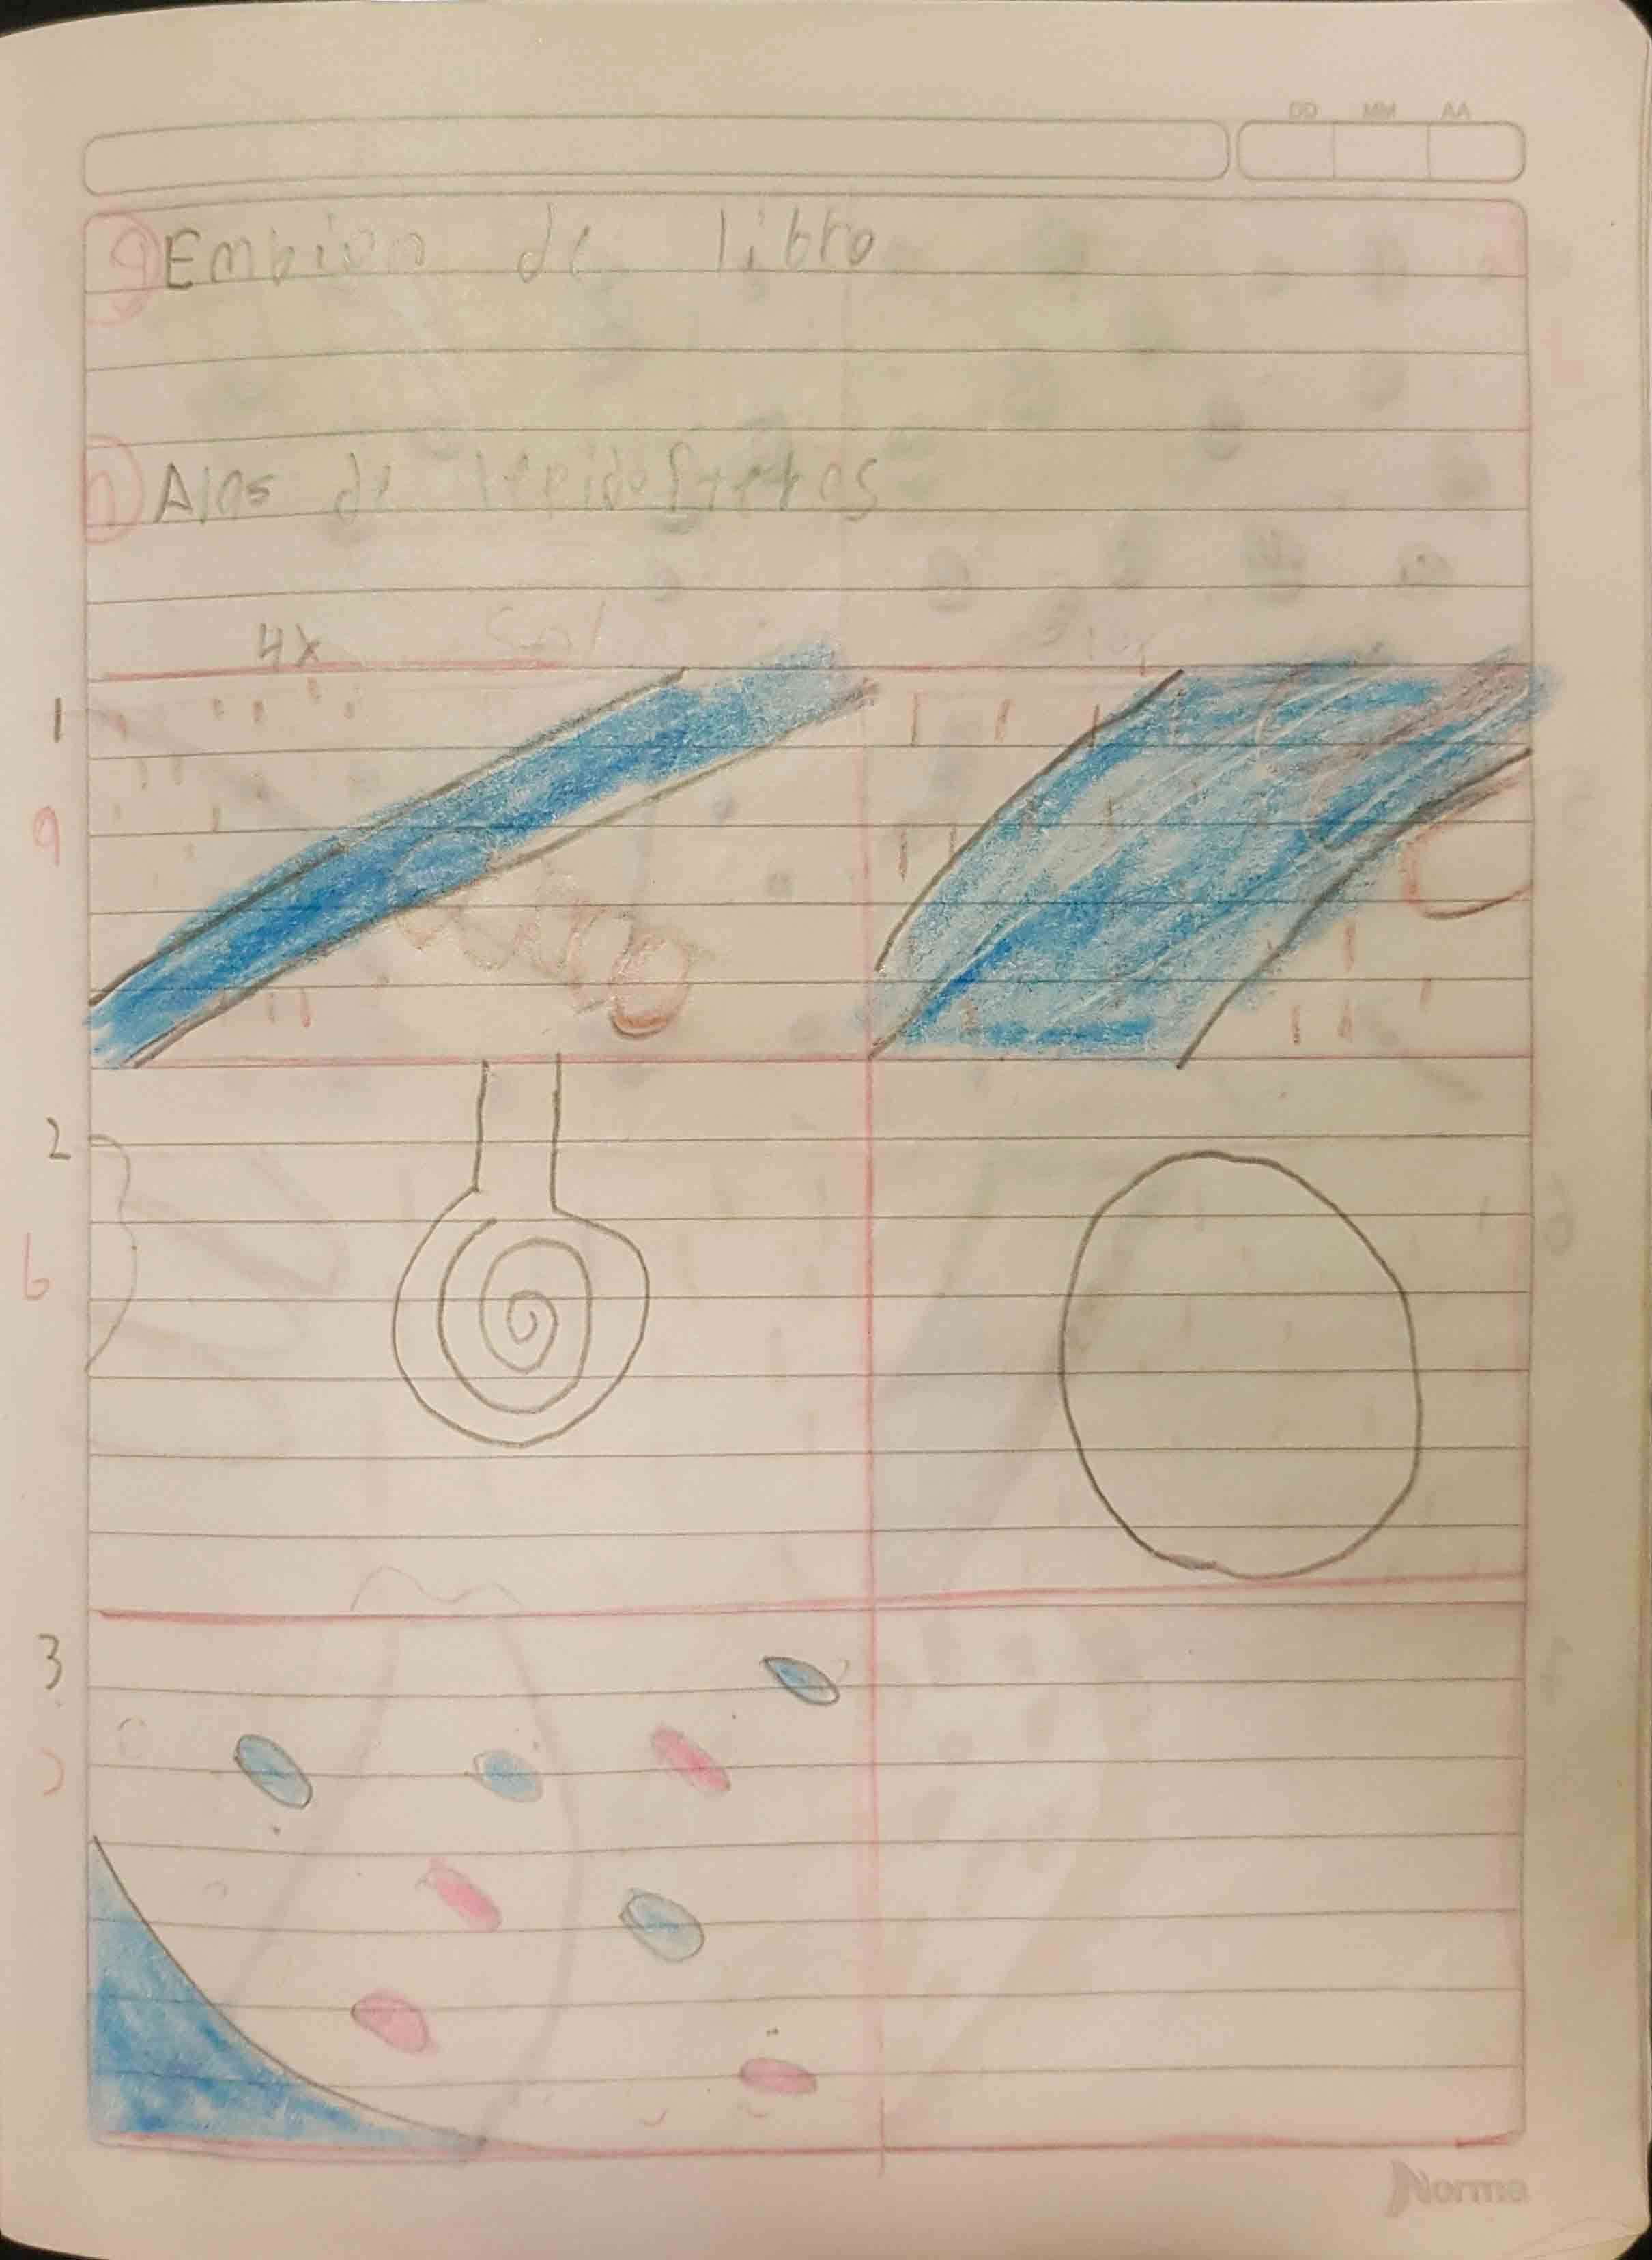 DD MM AA
g Embion de libro
h Alas de lepidofteros
4X
1
a
2
b
3
Norma